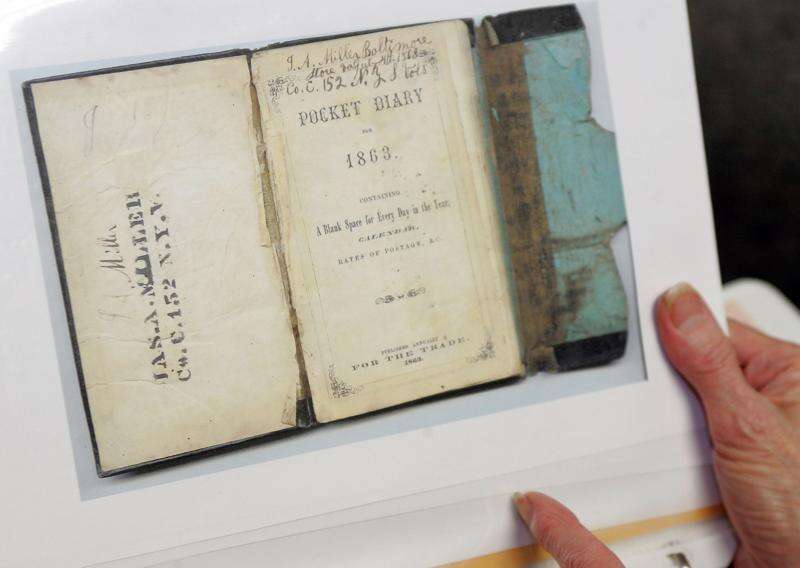 J. A. Miller
JAS. A. MILLER
Co. C. 152 N.Y.V.
J. A. Miller Baltimore
Store
Co. C. 152 N.Y.S. Vols
POCKET DIARY
FOR
1863.
CONTAINING
A Blank Space for Every Day in the Year,
CALENDAR,
RATES OF POSTAGE, &C.
PUBLISHED ANNUALLY
FOR THE TRADE.
1863.